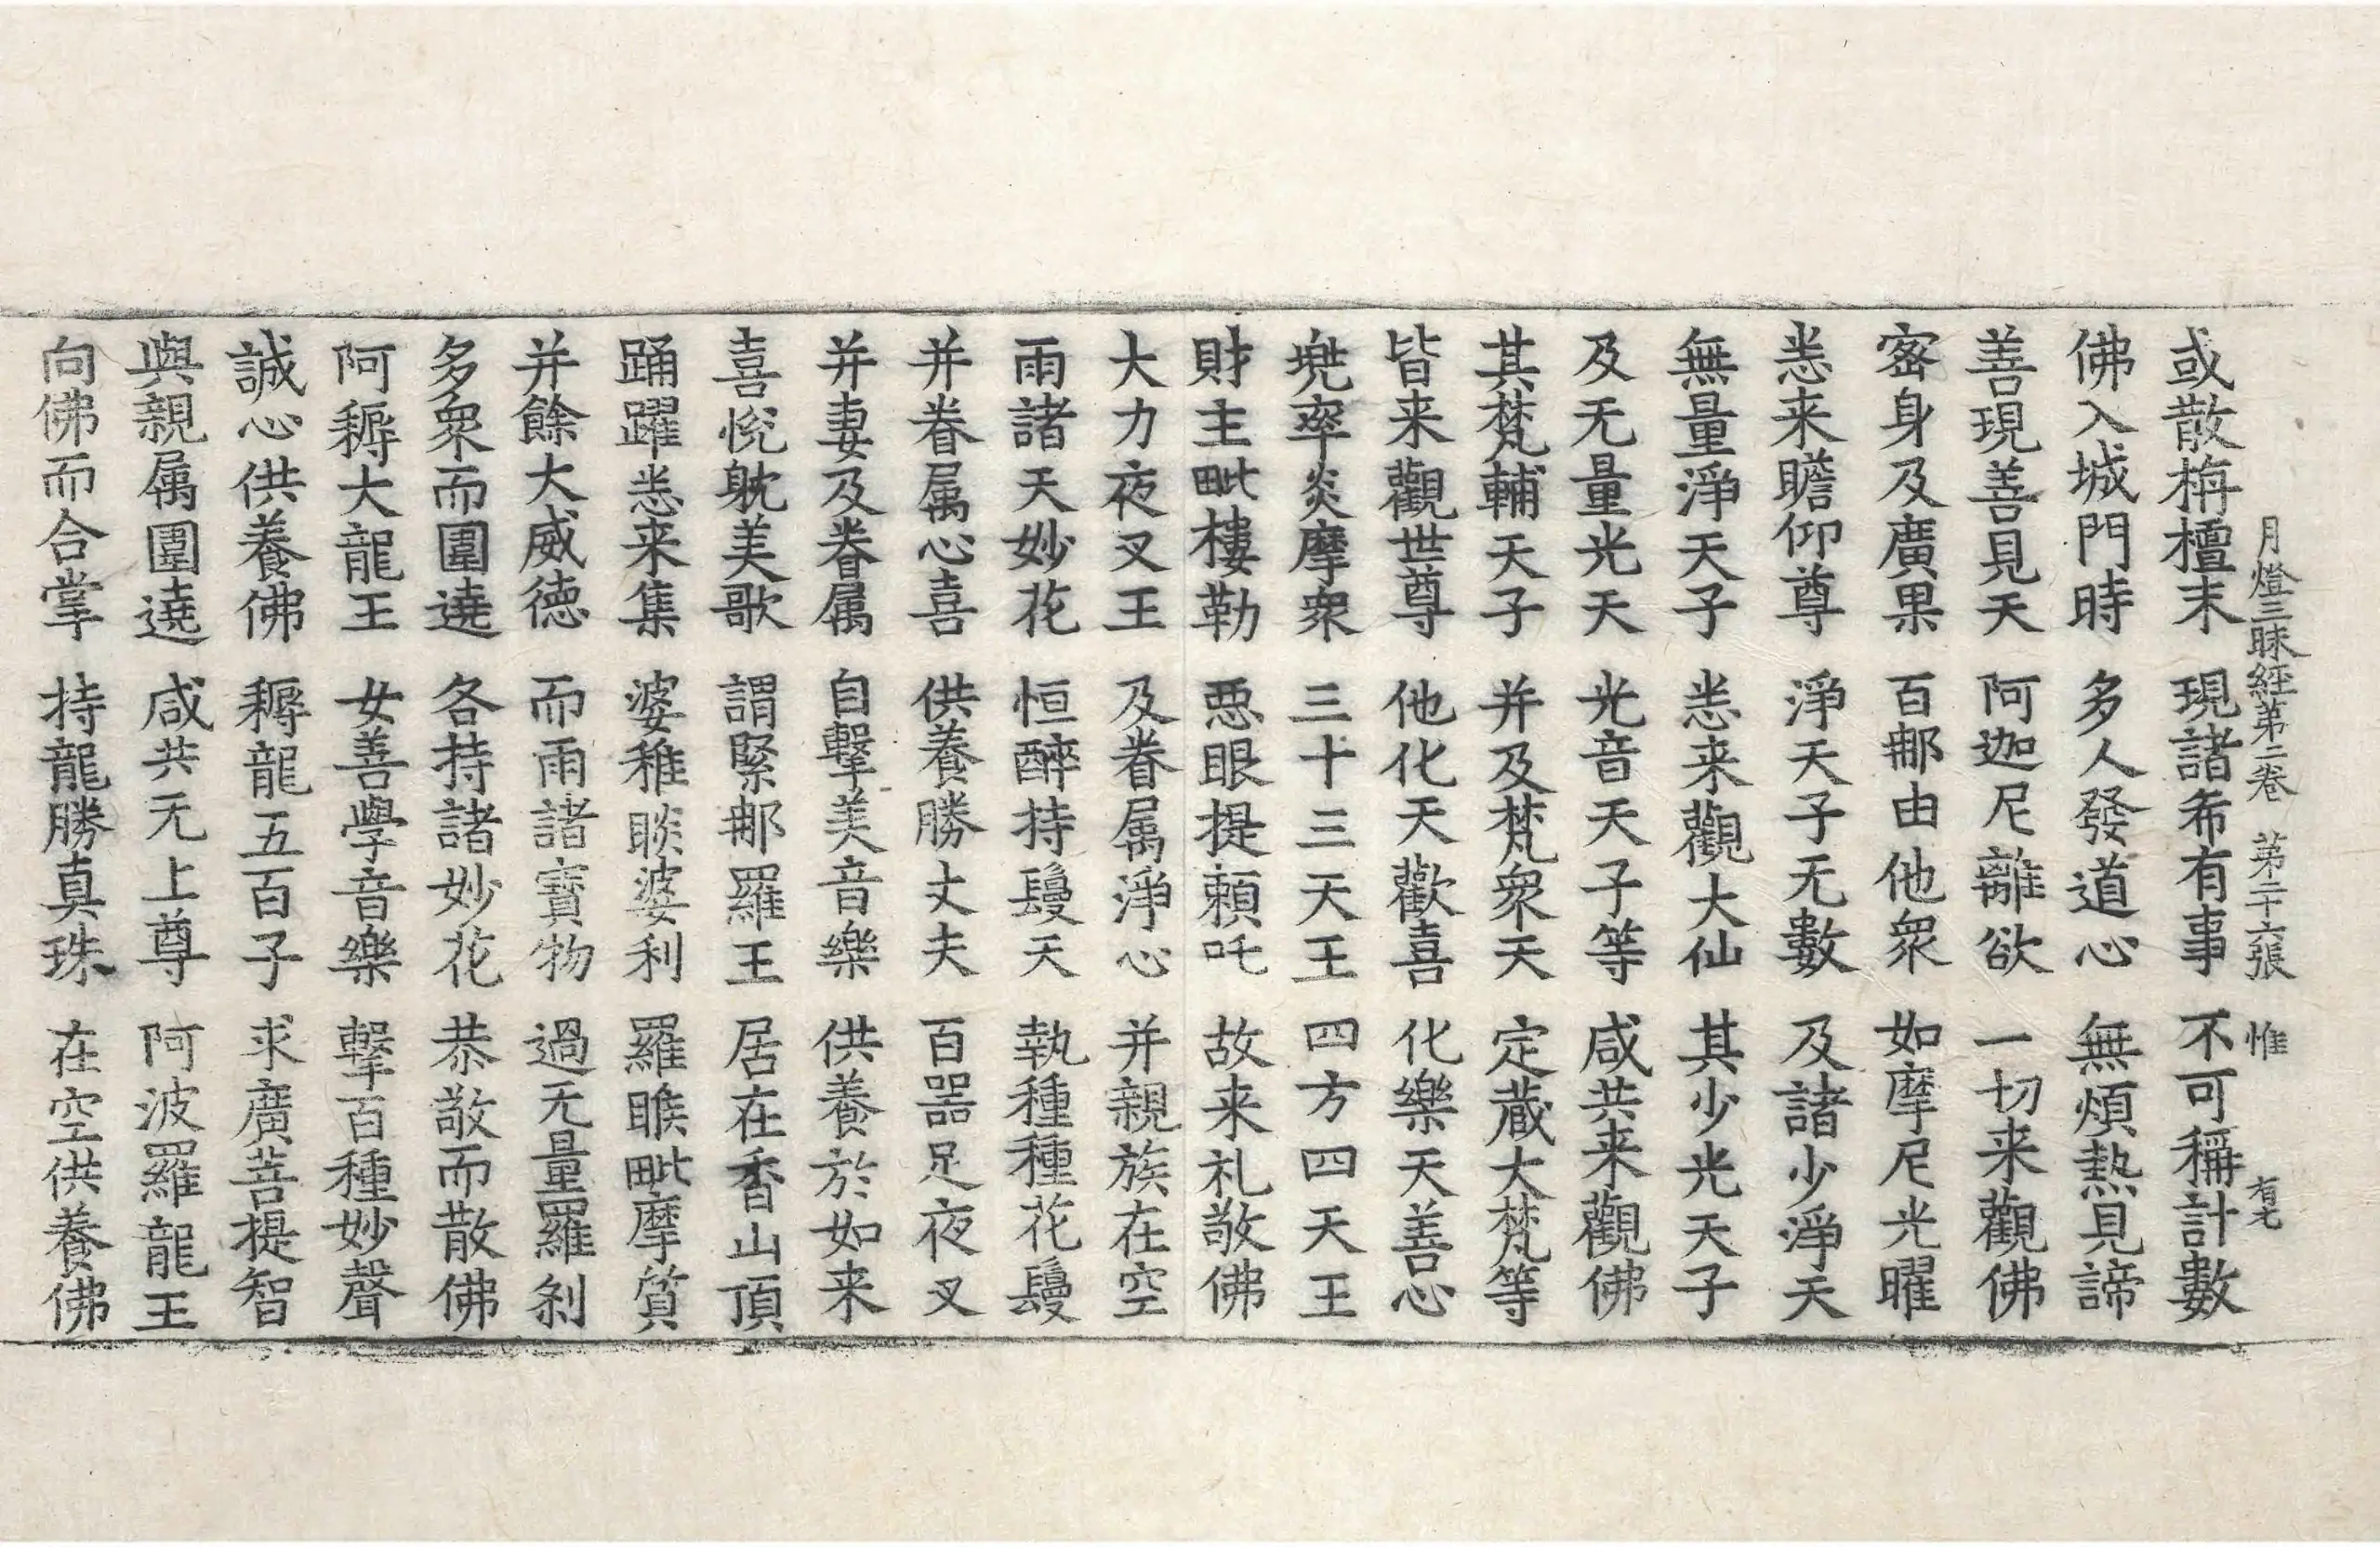 月燈三昧経苐二卷　苐二十六張　惟　有七
或散栴檀末　現諸希有事　不可稱計數
佛入城門時　多人發道心　無煩熱見諦
善現善見天　阿迦尼離欲　一切来觀佛
宻身及廣果　百郍由他衆　如摩尼光曜
恙来瞻仰尊　淨天子无數　及諸少淨天
無量淨天子　恙来觀大仙　其少光天子
及无量光天　光音天子等　咸共来觀佛
其梵輔天子　并及梵衆天　定蔵大梵等
皆来觀世尊　他化天歡喜　化樂天善心
兠率炎摩衆　三十三天王　四方四天王
財主毗樓勒　惡眼提頼吒　故来礼敬佛
大力夜叉王　及眷属淨心　并親族在空
雨諸天妙花　恒醉持鬘天　執種種花鬘
并眷属心喜　供養勝丈夫　百噐足夜叉
并妻及眷属　自擊美音樂　供養於如来
喜悅躭美歌　謂緊郍羅王　居在香山頂
踊躍恙来集　婆稚睒婆利　羅睺毗摩質
并餘大威德　而雨諸寶物　過无量羅刹
多衆而圍遶　各持諸妙花　恭敬而散佛
阿耨大龍王　女善學音樂　擊百種妙聲
誠心供養佛　耨龍五百子　求廣菩提智
與親属圍遶　咸共无上尊　阿波羅龍王
向佛而合掌　持龍勝真珠　在空供養佛